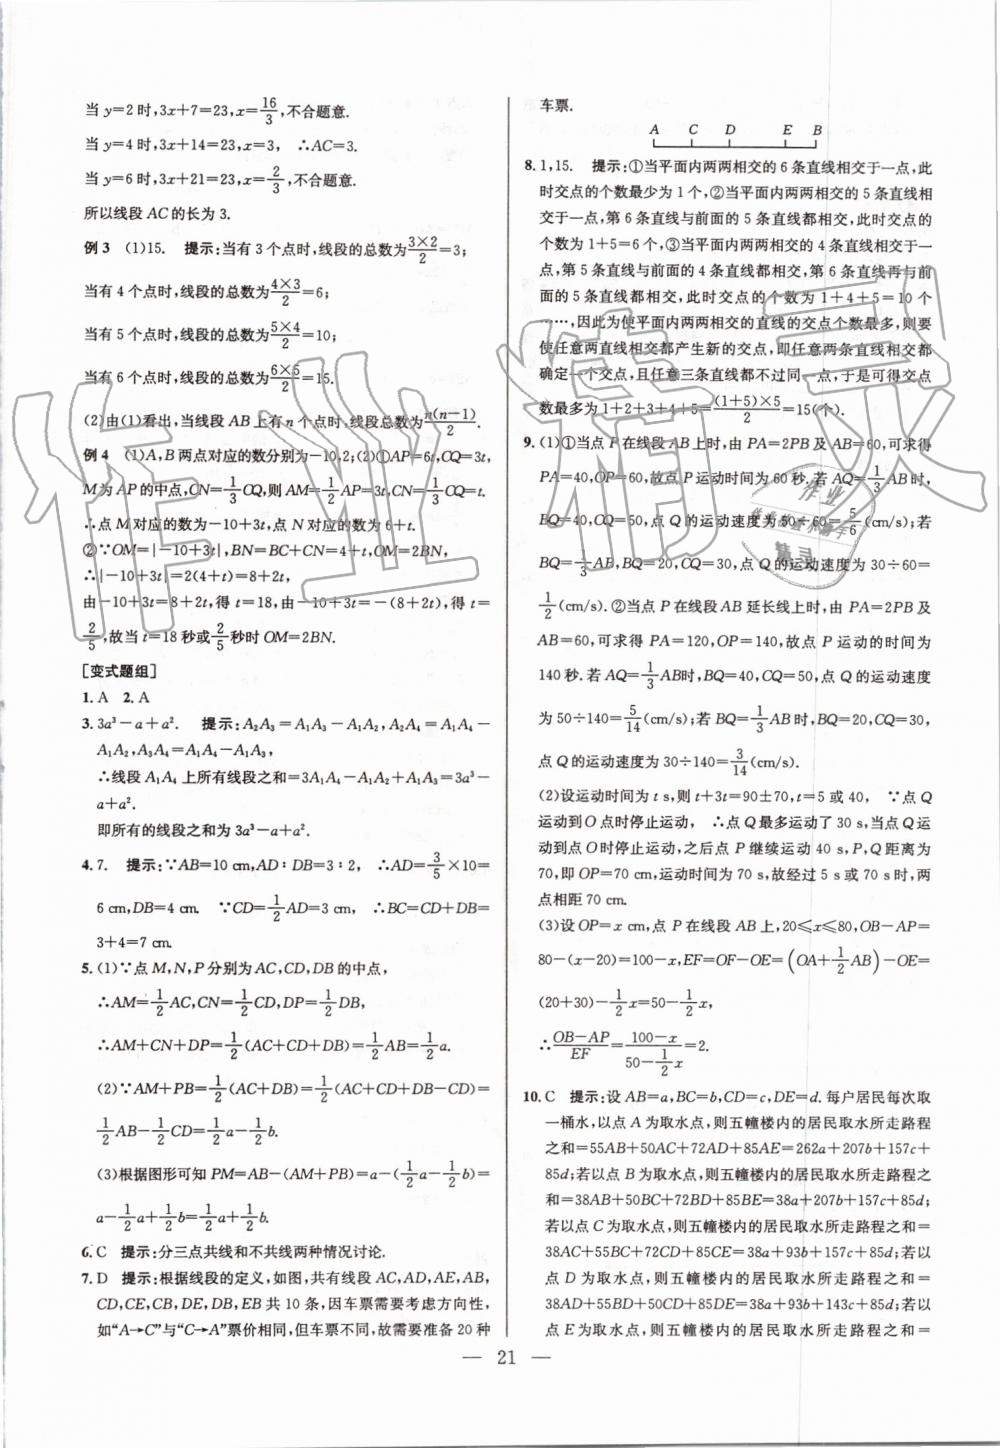 当 y=2 时,3x+7=23,x=16/3,不合题意.
当 y=4 时,3x+14=23,x=3, ∴AC=3.
当 y=6 时,3x+21=23,x=2/3,不合题意.
所以线段 AC 的长为 3.
例 3 (1)15. 提示:当有 3 个点时,线段的总数为(3×2)/2=3;
当有 4 个点时,线段的总数为(4×3)/2=6;
当有 5 个点时,线段的总数为(5×4)/2=10;
当有 6 个点时,线段的总数为(6×5)/2=15.
(2)由(1)看出,当线段 AB 上有 n 个点时,线段总数为n(n-1)/2.
例 4 (1)A,B 两点对应的数分别为-10,2;(2)①AP=6t,CQ=3t,
M 为 AP 的中点,CN=1/3CQ,则 AM=1/2AP=3t,CN=1/3CQ=t.
∴点 M 对应的数为-10+3t,点 N 对应的数为6+t.
②∵OM=|-10+3t|,BN=BC+CN=4+t,OM=2BN,
∴|-10+3t|=2(4+t)=8+2t,
由-10+3t=8+2t,得 t=18,由-10+3t=-(8+2t),得 t=
2/5,故当 t=18 秒或2/5秒时 OM=2BN.
[变式题组]
1. A 2. A
3. 3a³-a+a². 提示:A₂A₃=A₁A₃-A₁A₂,A₂A₄=A₁A₄-
A₁A₂,A₃A₄=A₁A₄-A₁A₃,
∴线段 A₁A₄ 上所有线段之和=3A₁A₄-A₁A₂+A₁A₃=3a³-
a+a².
即所有的线段之和为 3a³-a+a².
4. 7. 提示:∵AB=10 cm,AD∶DB=3∶2, ∴AD=3/5×10=
6 cm,DB=4 cm. ∵CD=1/2AD=3 cm, ∴BC=CD+DB=
3+4=7 cm.
5. (1)∵点 M,N,P 分别为 AC,CD,DB 的中点,
∴AM=1/2AC,CN=1/2CD,DP=1/2DB,
∴AM+CN+DP=1/2(AC+CD+DB)=1/2AB=1/2a.
(2)∵AM+PB=1/2(AC+DB)=1/2(AC+CD+DB-CD)=
1/2AB-1/2CD=1/2a-1/2b.
(3)根据图形可知 PM=AB-(AM+PB)=a-(1/2a-1/2b)=
a-1/2a+1/2b=1/2a+1/2b.
6. C 提示:分三点共线和不共线两种情况讨论.
7. D 提示:根据线段的定义,如图,共有线段 AC,AD,AE,AB,
CD,CE,CB,DE,DB,EB 共 10 条,因车票需要考虑方向性,
如“A→C”与“C→A”票价相同,但车票不同,故需要准备 20 种
车票.
A C D E B
8. 1,15. 提示:①当平面内两两相交的 6 条直线相交于一点,此
时交点的个数最少为 1 个,②当平面内两两相交的 5 条直线相
交于一点,第 6 条直线与前面的 5 条直线都相交,此时交点的
个数为 1+5=6 个,③当平面内两两相交的 4 条直线相交于一
点,第 5 条直线与前面的 4 条直线都相交,第 6 条直线再与前
面的 5 条直线都相交,此时交点的个数为 1+4+5=10 个
……,因此为使平面内两两相交的直线的交点个数最多,则要
使任意两直线相交都产生新的交点,即任意两条直线相交都
确定一个交点,且任意三条直线都不过同一点,于是可得交点
数最多为 1+2+3+4+5=(1+5)×5/2=15(个).
9. (1)①当点 P 在线段 AB 上时,由 PA=2PB 及 AB=60,可求得
PA=40,OP=60,故点 P 运动时间为 60 秒.若 AQ=1/3AB 时,
BQ=40,CQ=50,点 Q 的运动速度为 50÷60=5/6(cm/s);若
BQ=1/3AB,BQ=20,CQ=30,点 Q 的运动速度为 30÷60=
1/2(cm/s).②当点 P 在线段 AB 延长线上时,由 PA=2PB 及
AB=60,可求得 PA=120,OP=140,故点 P 运动的时间为
140 秒.若 AQ=1/3AB 时,BQ=40,CQ=50,点 Q 的运动速度
为 50÷140=5/14(cm/s);若 BQ=1/3AB 时,BQ=20,CQ=30,
点 Q 的运动速度为 30÷140=3/14(cm/s).
(2)设运动时间为 t s,则 t+3t=90±70,t=5 或 40, ∵点 Q
运动到 O 点时停止运动, ∴点 Q 最多运动了 30 s,当点 Q 运
动到点 O 时停止运动,之后点 P 继续运动 40 s,P,Q 距离为
70,即 OP=70 cm,运动时间为 70 s,故经过 5 s 或 70 s 时,两
点相距 70 cm.
(3)设 OP=x cm,点 P 在线段 AB 上,20≤x≤80,OB-AP=
80-(x-20)=100-x,EF=OF-OE=(OA+1/2AB)-OE=
(20+30)-1/2x=50-1/2x,
∴(OB-AP)/EF=(100-x)/(50-1/2x)=2.
10. C 提示:设 AB=a,BC=b,CD=c,DE=d.每户居民每次取
一桶水,以点 A 为取水点,则五幢楼内的居民取水所走路程
之和=55AB+50AC+72AD+85AE=262a+207b+157c+
85d;若以点 B 为取水点,则五幢楼内的居民取水所走路程之
和=38AB+50BC+72BD+85BE=38a+207b+157c+85d;
若以点 C 为取水点,则五幢楼内的居民取水所走路程之和=
38AC+55BC+72CD+85CE=38a+93b+157c+85d;若以
点 D 为取水点,则五幢楼内的居民取水所走路程之和=
38AD+55BD+50CD+85DE=38a+93b+143c+85d;若以
点 E 为取水点,则五幢楼内的居民取水所走路程之和=
— 21 —
作业精灵